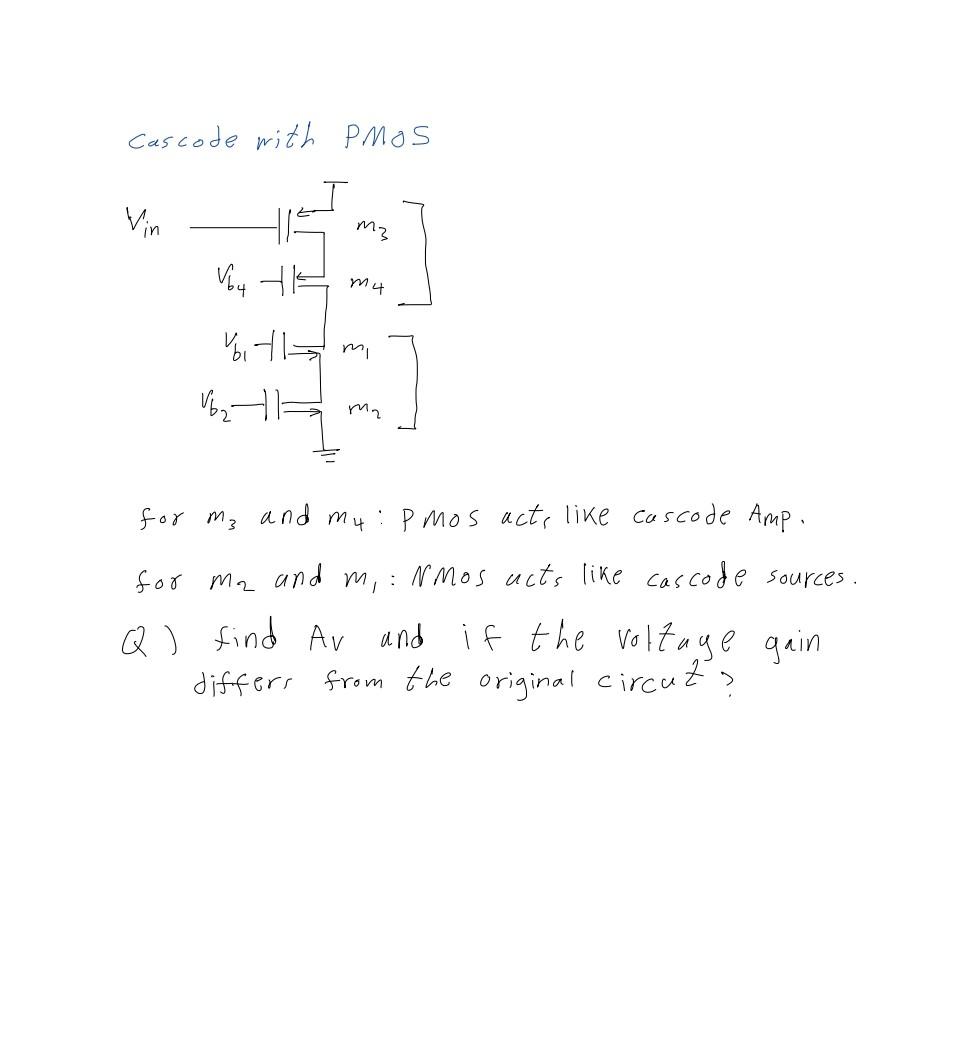 Cascode with PMOS
Vin
m3
Vb4
m4
Vb1
m1
Vb2
m2
for m3 and m4 : PMOS acts like cascode Amp.
for m2 and m1 : NMOS acts like cascode sources.
Q ) find Av and if the voltage gain
differs from the original circut ?